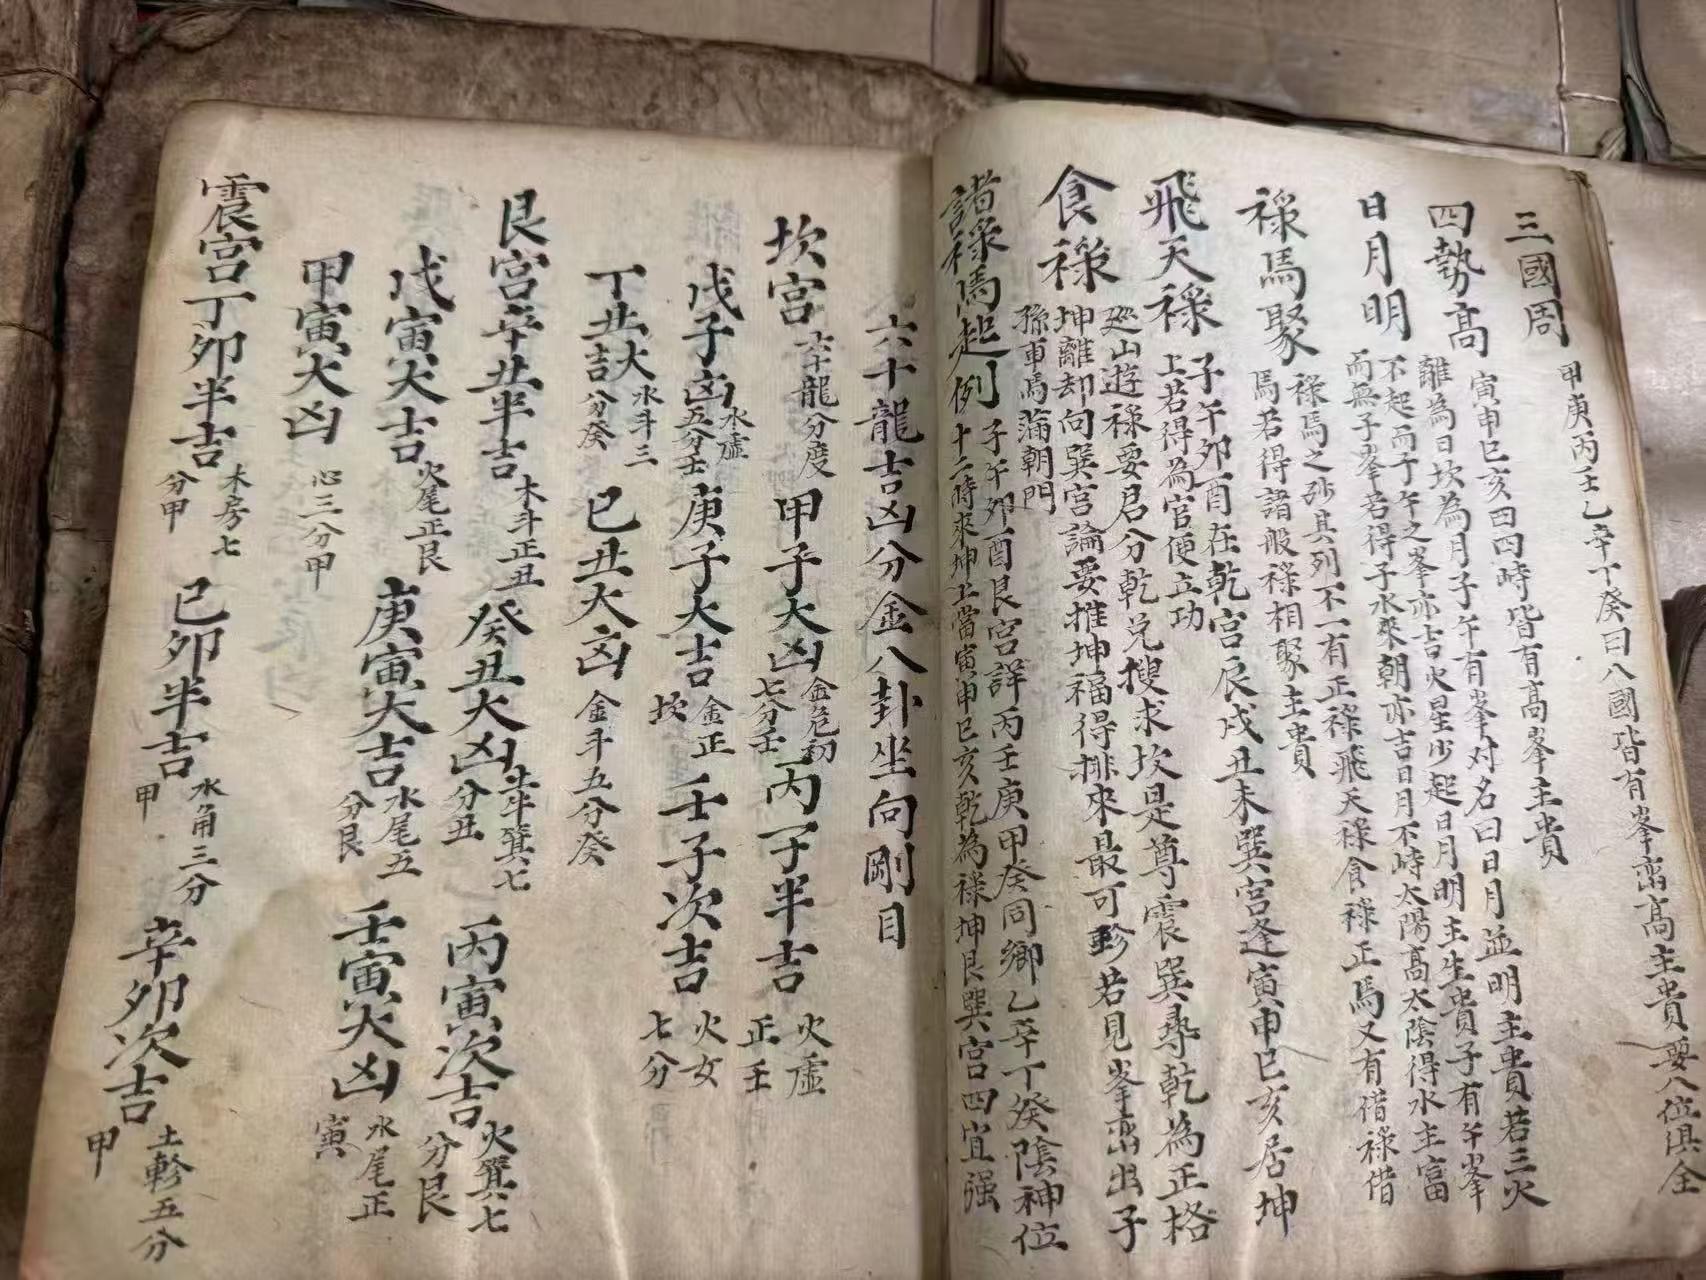 三國周 甲庚丙壬乙辛丁癸曰八國皆有峯巒高主貴要八位俱全
四勢高 寅申巳亥曰四峙皆有高峯主貴
日月明 離為日坎為月子午有峯对名曰日月並明主貴若三火
不起而子午之峯亦吉火星少起日月明主生貴子有午峯
而無子峯若得子水來朝亦吉日月不峙太陽高太陰得水主富
祿馬聚 祿馬之砂其列不一有正祿飛天祿食祿正馬又有借祿借
馬若得諸般祿相聚主貴
飛天祿 子午卯酉在乾宮辰戌丑未巽宮逢寅申巳亥居坤
上若得為官便立功
食祿 巡山遊祿要君分乾兌搜求坎是尊震巽尋乾為正格
坤離却向巽宮論要推坤福得排來最可珍若見峯巒出子
孫車馬滿朝門
諸祿馬起例 子午卯酉艮宮詳丙壬庚甲癸同鄉乙辛丁癸陰神位
十二時來坤上當寅申巳亥乾為祿坤艮巽宮四宜强
六十龍吉凶分金八卦坐向剛目
坎宮 六十龍分度 甲子大凶 金危初七分壬 丙子半吉 火虛正壬
戊子凶 水虛五分壬 庚子大吉 金正坎 壬子次吉 火女七分
丁丑大吉 水斗三分癸 己丑大凶 金斗五分癸
艮宮 辛丑半吉 木斗正丑 癸丑大凶 土牛箕七分丑 丙寅次吉 火箕七分艮
戊寅大吉 火尾正艮 庚寅大吉 水尾五分艮 壬寅大凶 水尾正寅
甲寅大凶 心三分甲
震宮 丁卯半吉 木房七分甲 己卯半吉 水角三分甲 辛卯次吉 土軫五分甲